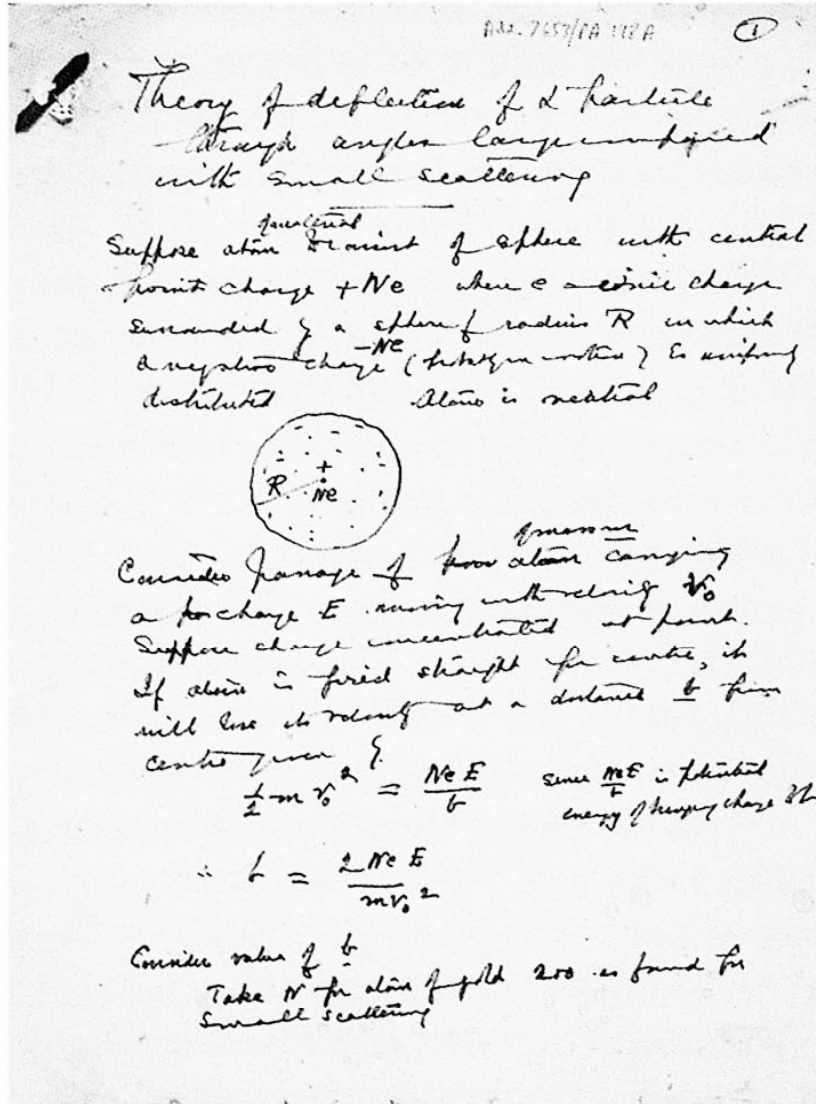 Add. 7653/PA 198 A
1
Theory of deflection of α particle
through angles large compared
with small scattering
of material
Suppose atom consist of sphere with central
point charge +Ne where e = ionic charge
surrounded by a sphere of radius R in which
a negative charge -Ne ( ) is uniformly
distributed Atom is neutral
+
-
R Ne
of mass m
Consider passage of atom carrying
a + charge E moving with velocity v₀
Suppose charge concentrated at point.
If atom is fired straight for centre, it
will lose its velocity at a distance b from
centre given by
½ m v₀² = NeE/b since NeE/b is potential
energy of bringing charge
∴ b = 2NeE/mv₀²
Consider value of b
Take N for atom of gold 200 as found for
small scattering